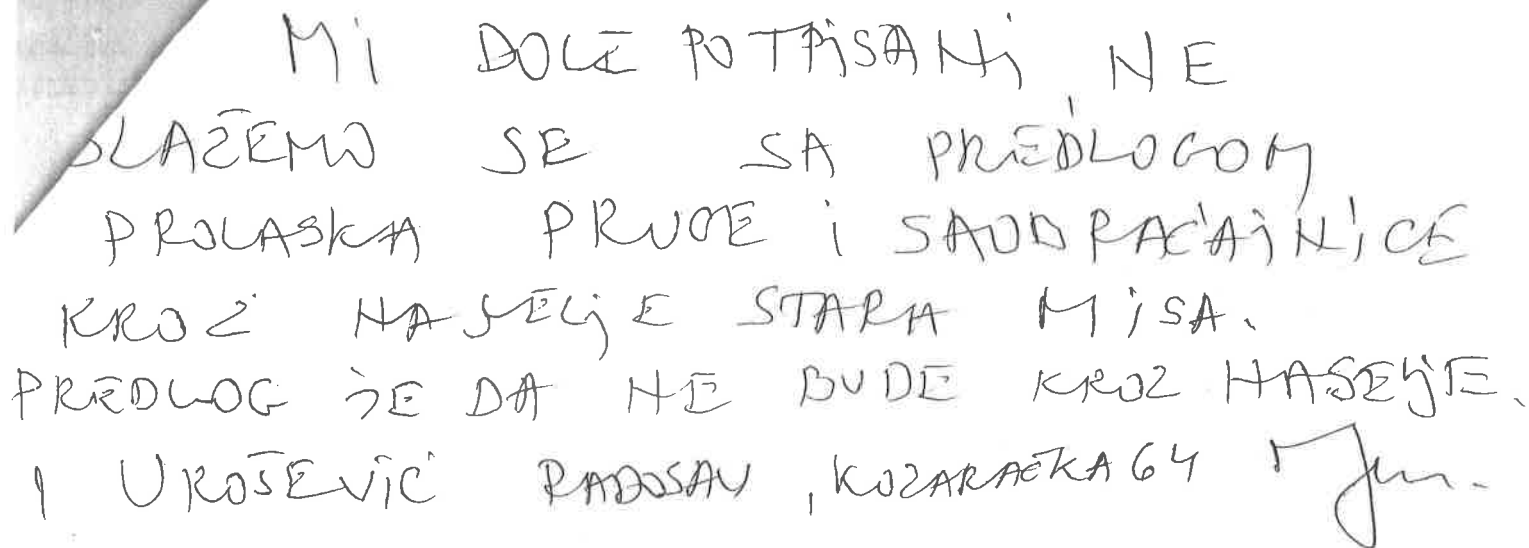 MI DOLE POTPISANI NE
SLAŽEMO SE SA PREDLOGOM
PROLASKA PRUGE I SAOBRAĆAJNICE
KROZ NASELJE STARA MISA.
PREDLOG JE DA NE BUDE KROZ NASELJE.
1 UROŠEVIĆ RADOSAV, KOZARAČKA 64